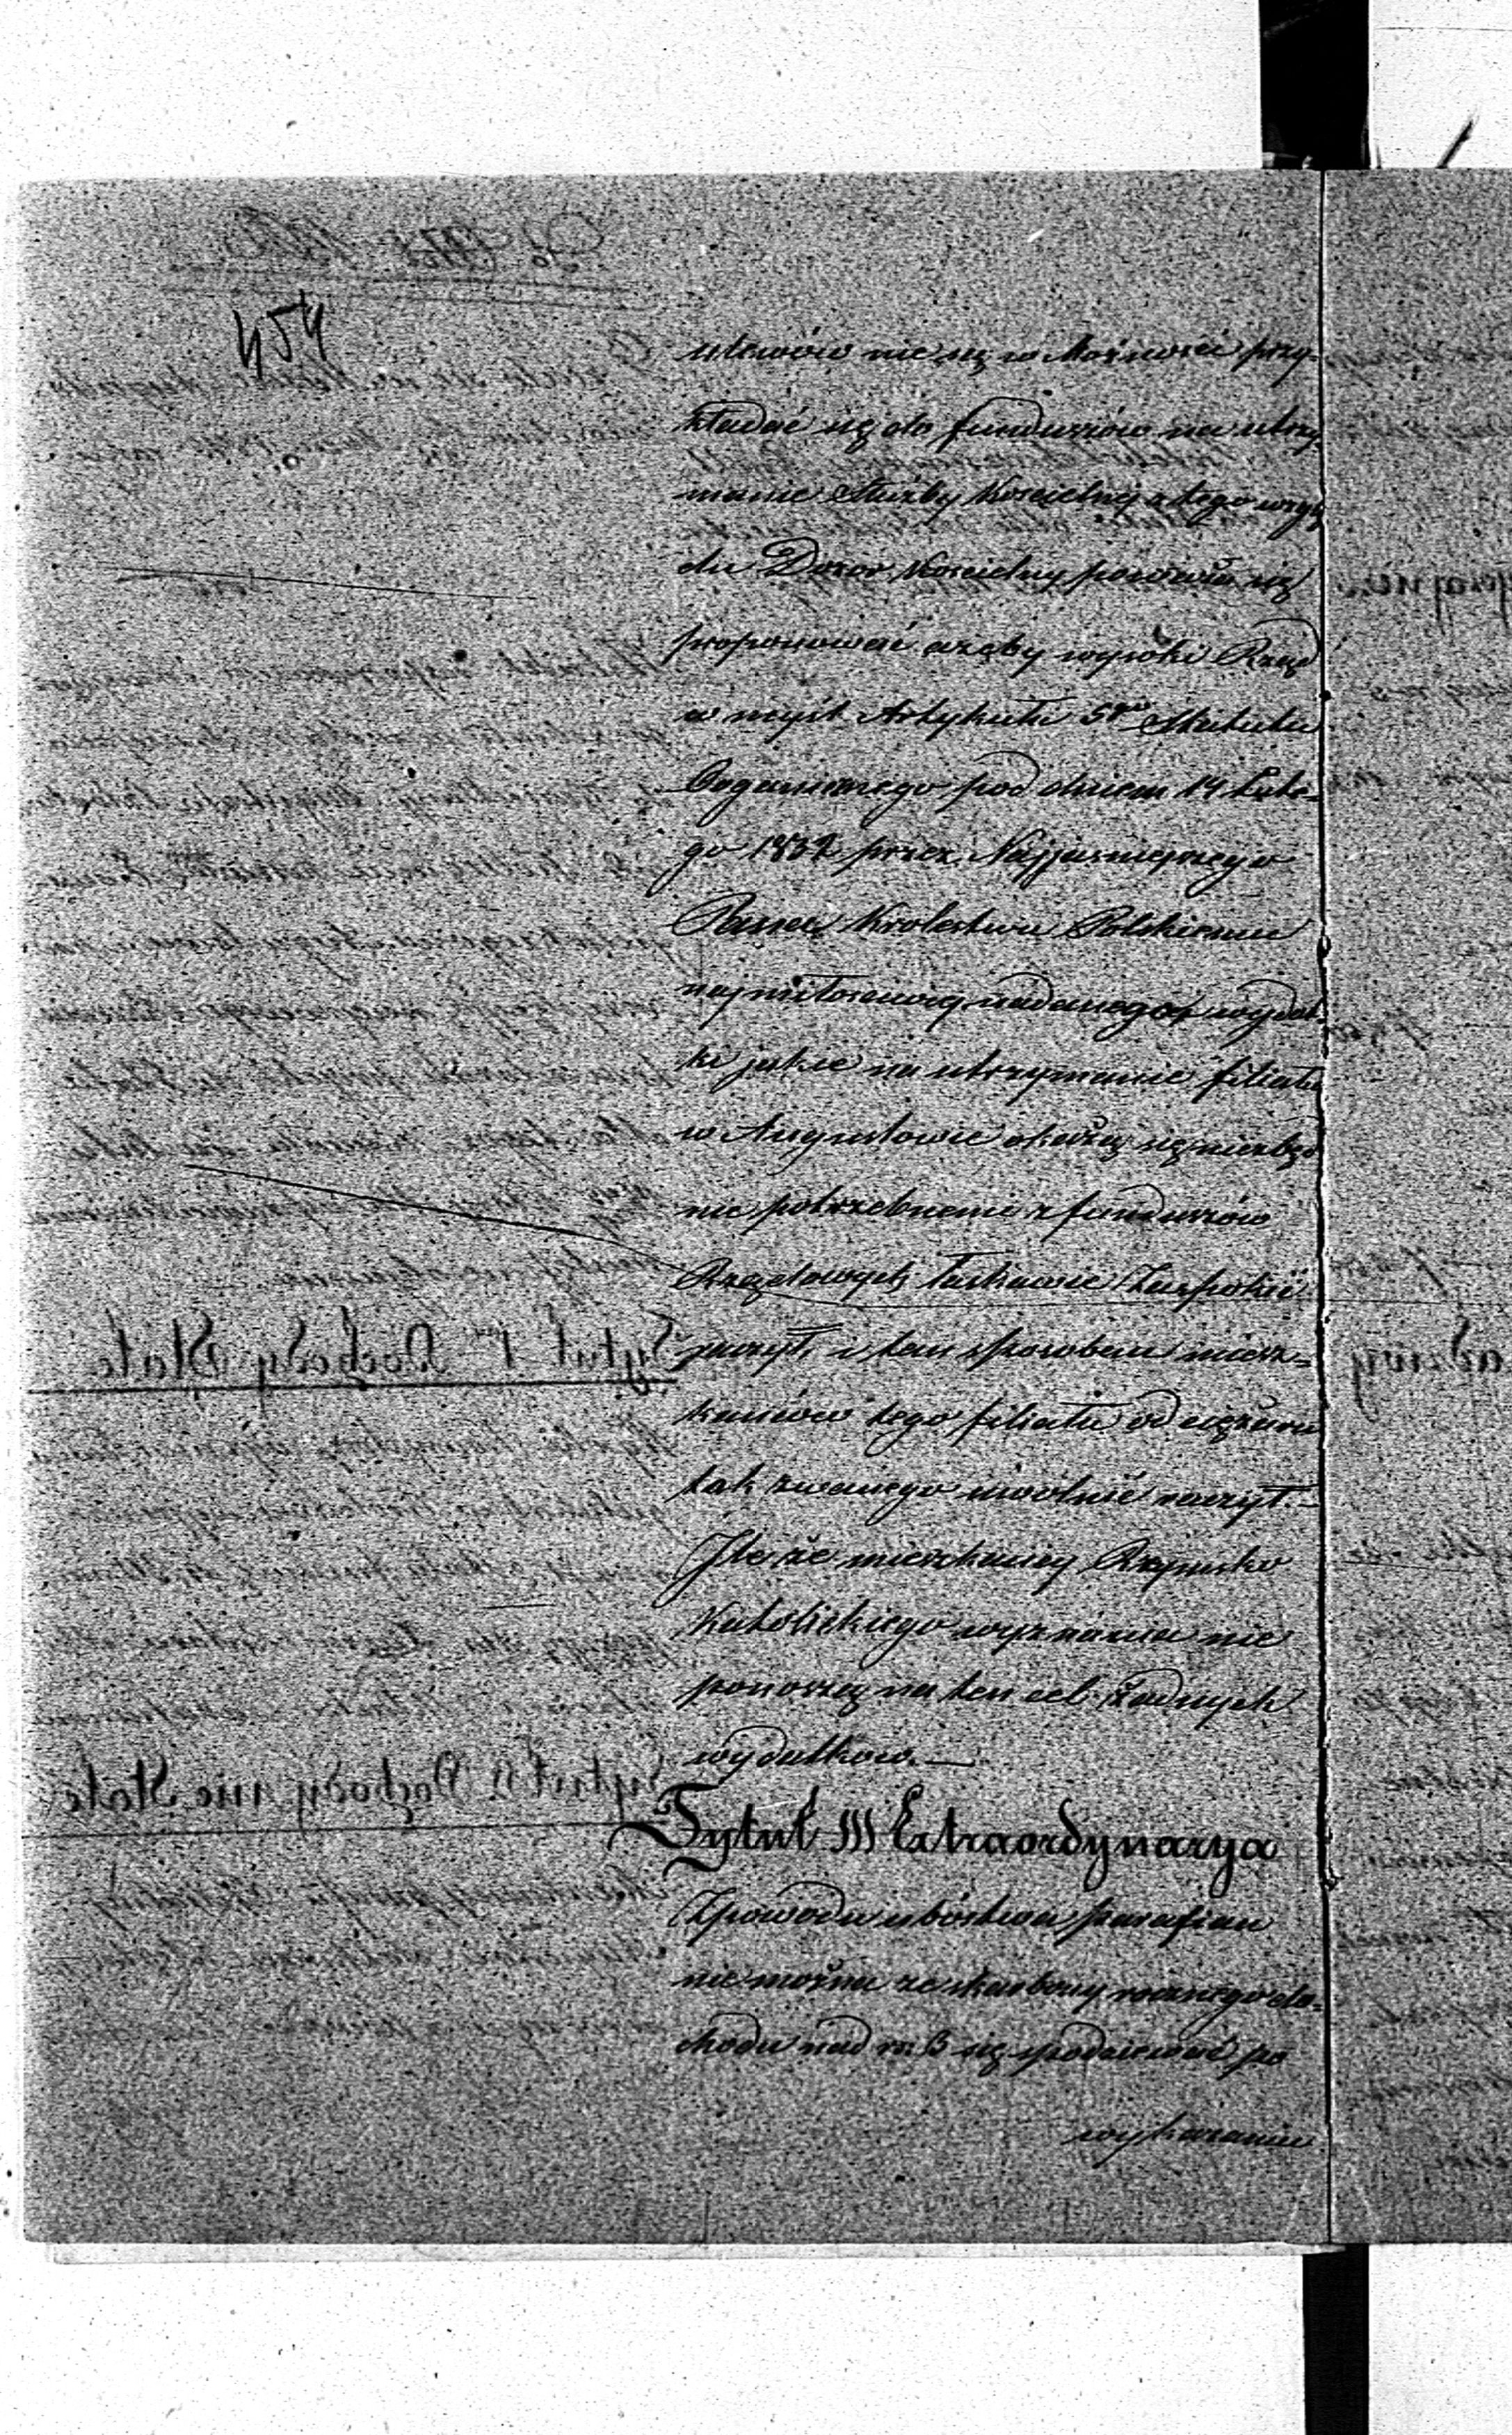 454
nie są w Możności przy-
kładać się do funduszów na utrzy-
manie Służby Kościelnej z tego wzglę
du Dozor Kościelny poważa się
proponować ażeby wysoki Rząd
w myśl Artykułu 5go Statutu
Organicznego pod dniem 14 Lute-
go 1832 przez Najjasniejszego
Pana Krolestwu Polskiemu
najmiłosciwiej nadanego wydat
ki jakie na utrzymanie filiału
w Augustowie okażą się niezbę
nie potrzebnemi z funduszów
Rządowych łaskawie Zaspokoić
raczył, i tem sposobem miesz-
kańców tego filiału od ciężaru
tak zwanego uwolnić raczył -
Ile że mieszkańcy Rzymsko
Katolickiego wyznania nie
ponoszą na ten cel żadnych
wydatkow. —
Tytuł III Extraordynarya
Z powodu ubóstwa parafian
nie można ze skarbony rocznego do-
chodu nad rs. 3 się spodziewać po
wykazaniu